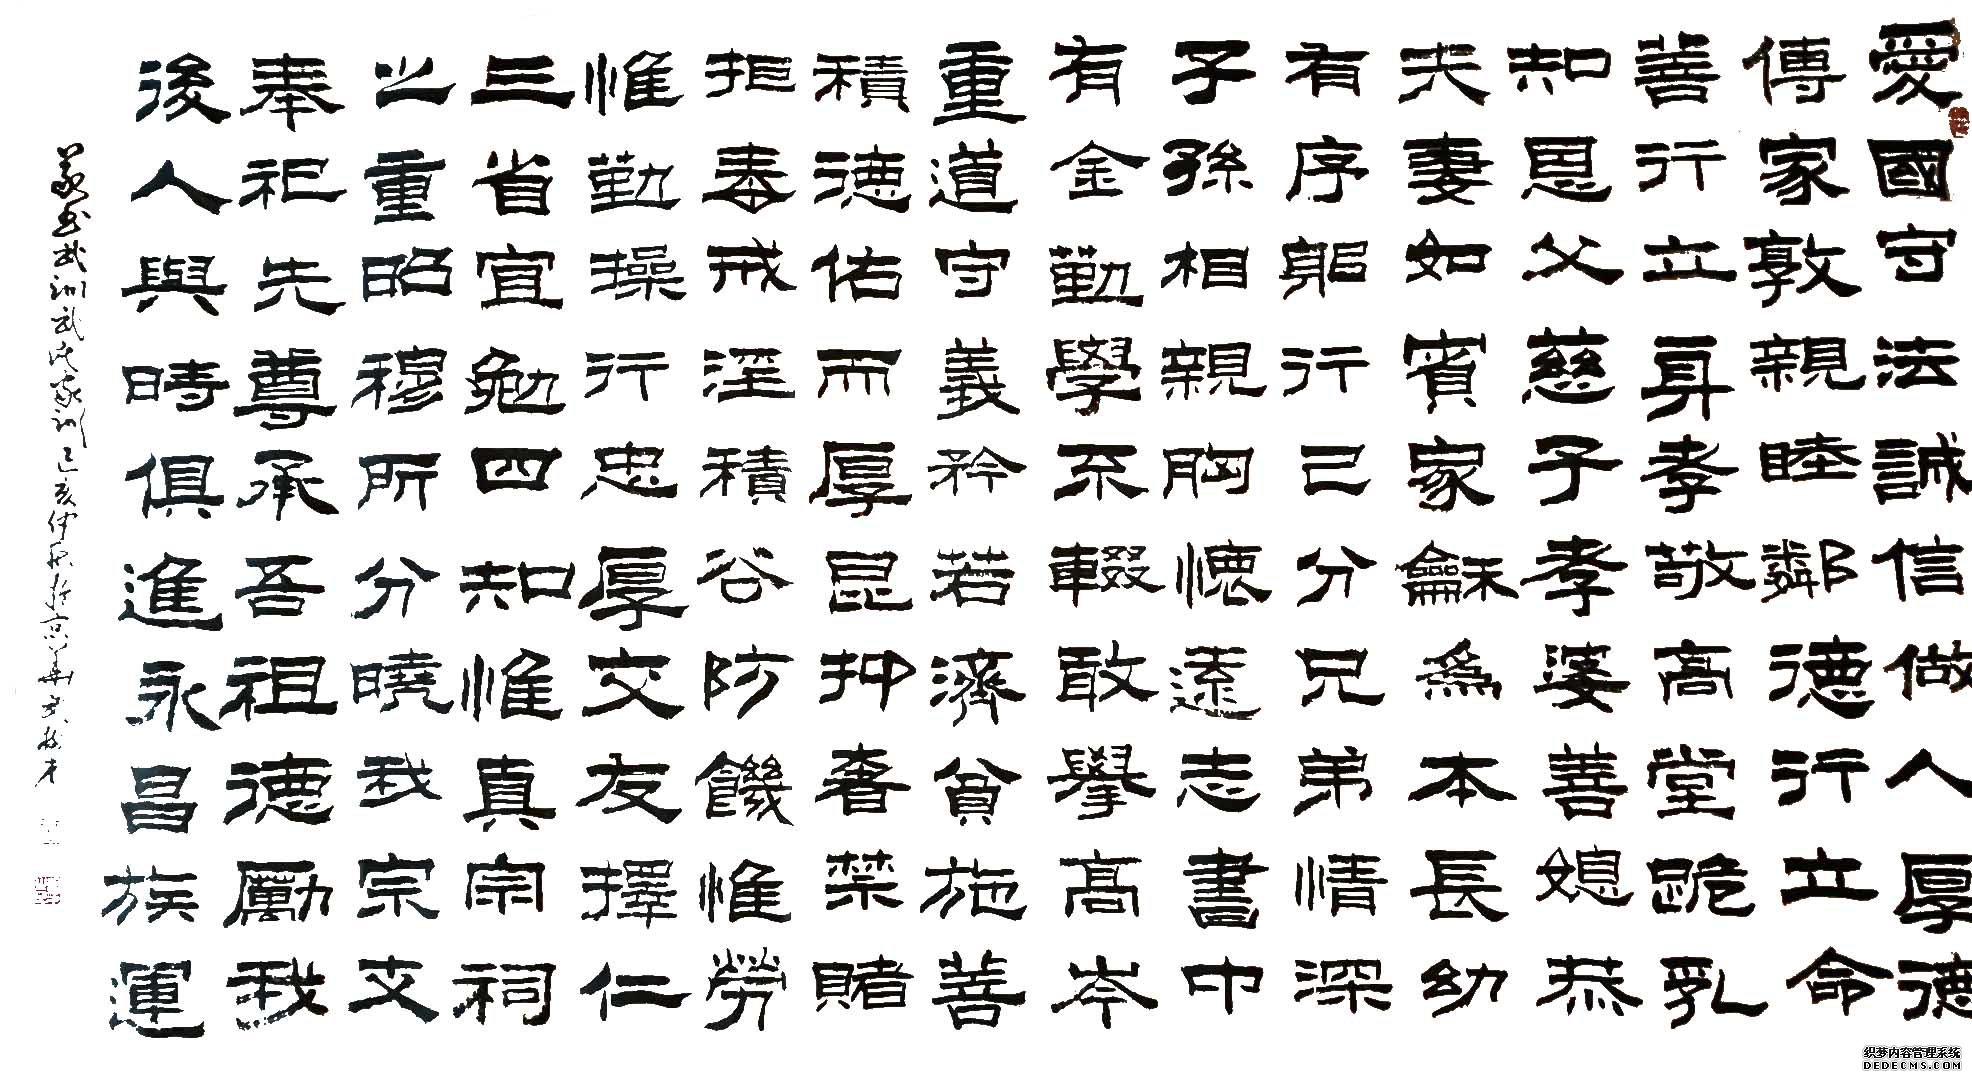 愛國守法誠信做人厚德
傳家敦親睦鄰德行立命
善行立身孝敬高堂跪乳
知恩父慈子孝婆善媳恭
夫妻如賓家龢爲本長幼
有序躬行己分兄弟情深
子孫相親胸懷遠志書中
有金勤學不輟敢攀高岑
重道守義矜若濟貧施善
積德佑而厚昆抑奢禁賭
拒毒戒淫積谷防饑惟勞
惟勤操行忠厚交友擇仁
三省宜勉四知惟真宗祠
之重昭穆所分曉我宗支
奉祀先尊承吾祖德勵我
後人與時俱進永昌族運
武训武氏家训己亥仲秋於京華
织梦内容管理系统
DEDECMS.COM